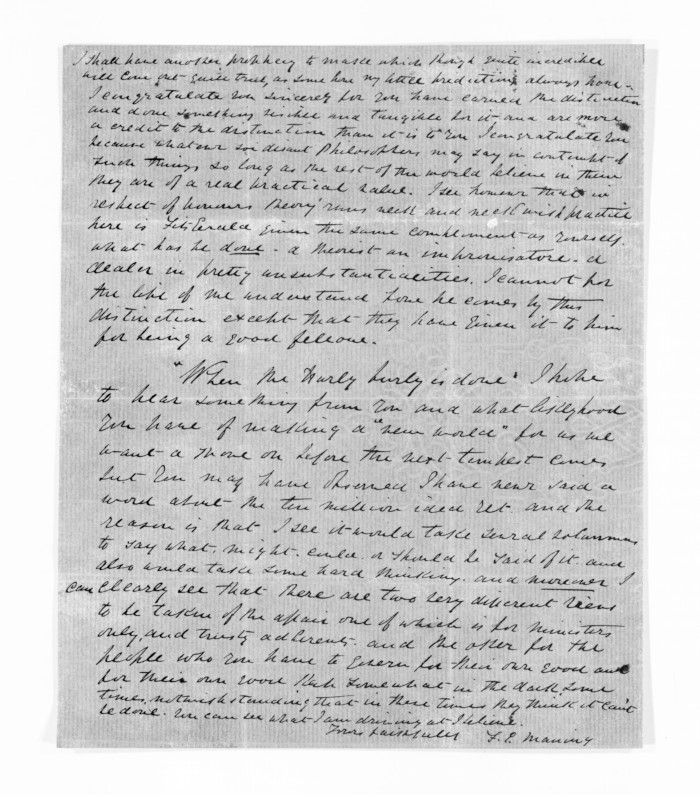 I shall have another prophecy to make which though quite incredible
will come out quite true, as some how my little predictions always have –
I congratulate you sincerely for you have earned the distinction
and done something useful and tangible for it and are more
a credit to the distinction than it is to you I congratulate you
because whatever soi disant Philosophers may say in contempt of
such things so long as the rest of the world believe in them
they are of a real practical value. I see however that in
respect of honours theory runs neck and neck with practice
here is FitzGerald given the same complement as yourself.
what has he done – a theorist an improvisatore. a
dealer in pretty unsubstantialities. I cannot for
the life of me understand how he comes by this
distinction except that they have given it to him
for being a good fellow.
"When the Hurly burly is done" I hope
to hear something from you and what likelyhood
you have of making a "new world" for us we
want a move on before the next tempest comes
but you may have observed I have never said a
word about the ten million idea yet and the
reason is that I see it would take several columns
to say what, might, could, or should be said of it and
also would take some hard thinking. and moreover I
can clearly see that there are two very different views
to be taken of the affair one of which is for ministers
only, and trusty adherents. and the other for the
people who you have to govern for their own good and
for their own good keep somewhat in the dark some
times, notwithstanding that in these times they think it can't
be done. you can see what I am driving at I believe.
Yours faithfully F. E. Maning